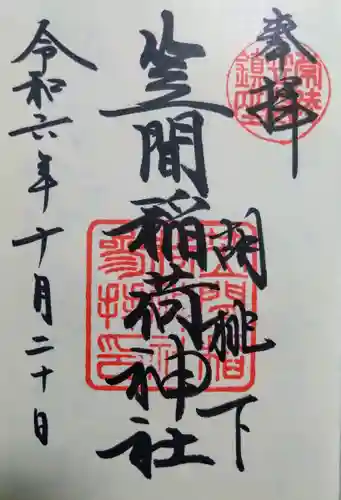 奉拝
胡桃下
笠間稲荷神社
令和六年十月二十日